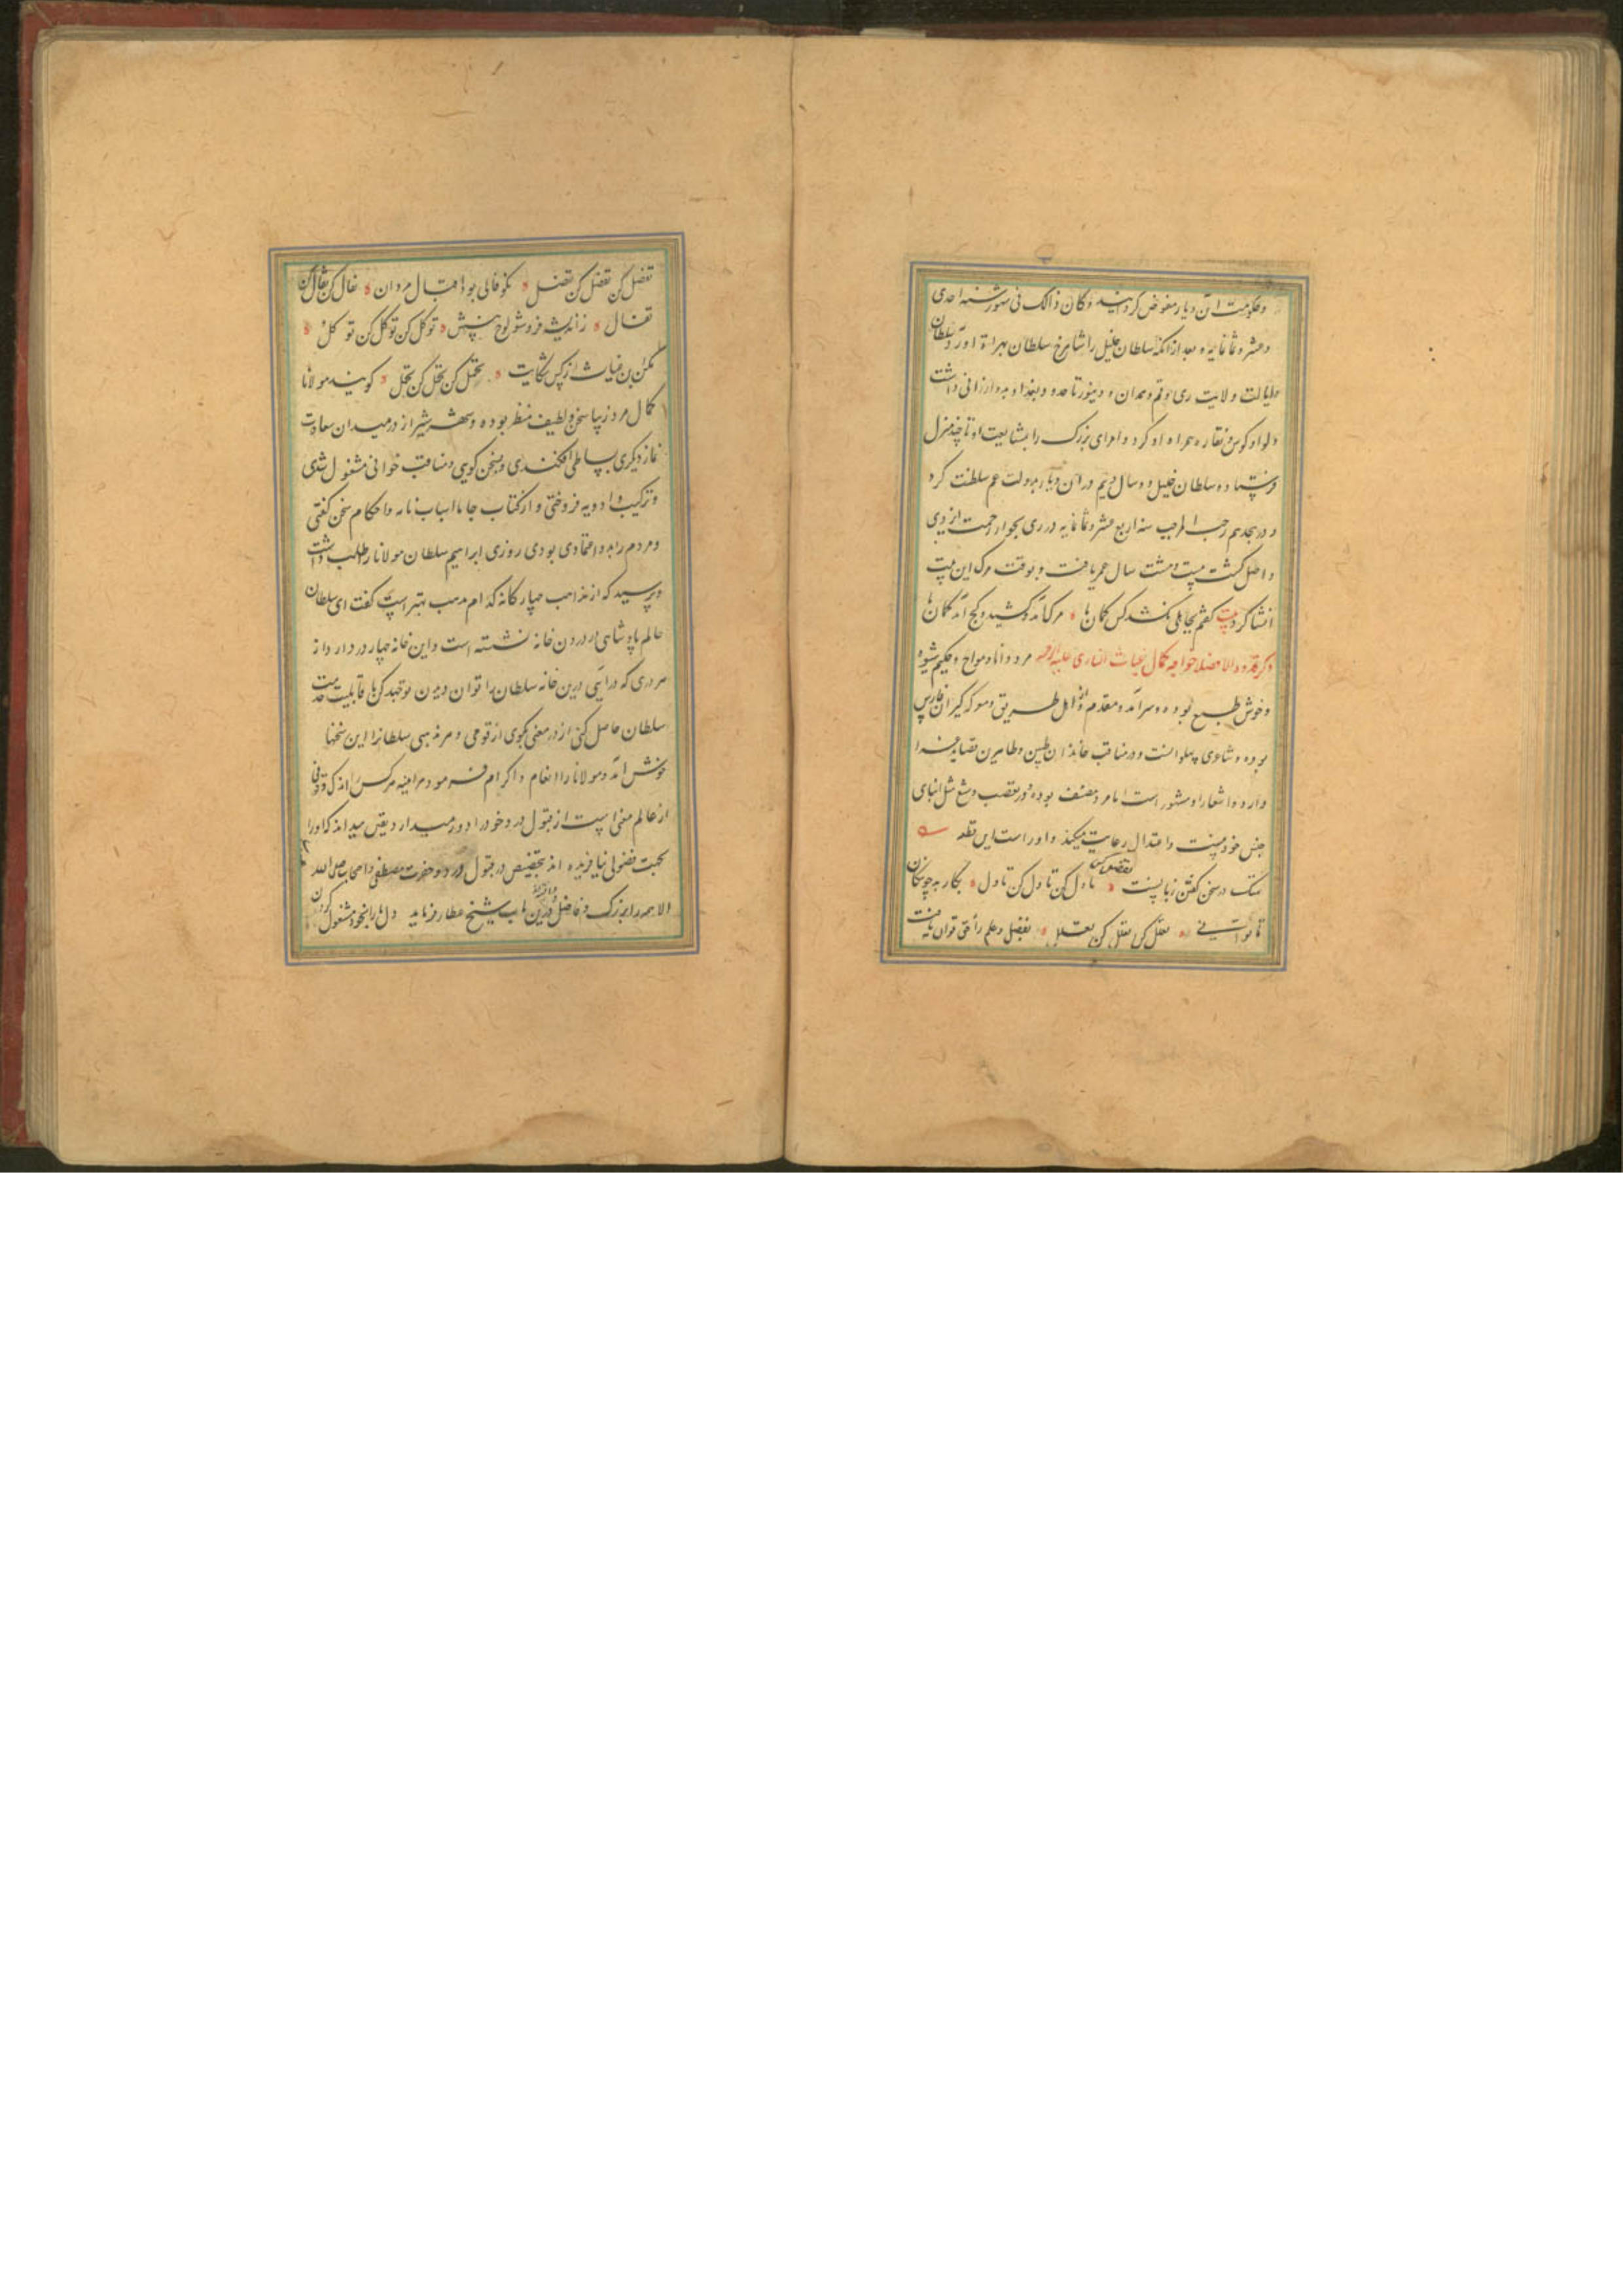 وحکومت آن دیار مفوض کردانید وکان ذالک فی شهور سنه احدی
وعشر وثمانمایه و بعد از انکه سلطان خلیل را شاهرخ سلطان بهراة آورد سلطان
وایالت ولایت ری وقم وهمدان و دینور تا حدود بغداد بدو ارزانی داشت
ولوا و کوس و نقاره همراه او کرد و امرای بزرک را بمشایعت او تا چند منزل
فرستاد و سلطان خلیل دو سال و نیم در ان دیار بدولت عم سلطنت کرد
و در هجدهم رجب المرجب سنه اربع عشر وثمانمایه در ری بجوار رحمت ایزدی
واصل کشت بیست وهشت سال عمر یافت و بوقت مرک این بیت
انشا کرد بیت کفتم بجاهلی نکشد کس کمان ما مرک آمد و کشید و کج آمد کمان ما
ذکر قدوة الافاضل خواجه کمال غیاث الفارسی علیه الرحمه مرد دانا ومداح وحکیم شیوه
وخوش طبع بوده وسرآمد ومقدم اهل طریق ومعرکه کیران فارس
بوده و شاعری پهلوانست و در مناقب خاندان طیبین وطاهرین قصاید غرا
دارد واشعار او مشهور است اما مرد منصف بوده ودر تعصب وتشیع مثل ابنای
جنس خود نیست واعتدال رعایت میکند و او راست این قطعه
سبک در سخن کفتن زبانست تأول کن تأول کن تأول بکار بد چو نتکان
تا توانی تعلل کن تعلل کن تعلل بفضل وعلم راه حق توان یافت
تفضل کن تفضل کن تفضل نکو فالی بود اقبال مردان تفال کن تفال کن
تفال ز اندیشه فرو شو لوح بینش توکل کن توکل کن توکل
مکن ابن غیاث از کس شکایت تحمل کن تحمل کن تحمل کویند مولانا
کمال مرد زیبا سخن ولطیف منظر بوده و بشهر شیراز در میدان سعادت
نماز دیکری بساطی افکندی و بسخن کویی ومناقب خوانی مشغول شدی
و ترکیب و ادویه فروختی و از کتاب جاماسب نامه واحکام سخن کفتی
و مردم را بدو اعتقادی بودی روزی ابراهیم سلطان مولانا را طلب داشت
وپرسید که از مذاهب چهار کانه کدام مذهب بهتر است کفت ای سلطان
عالم پادشاهی در درون خانه نشسته است و این خانه چهار در دارد از
هر دری که درآیی درین خانه سلطان را توان دیدن تو جهد کن تا قابلیت خدمت
سلطان حاصل کنی از در معنی کوی از قومی و مرد مذهبی سلطانرا این سخنها
خوش آمد ومولانا را انعام و اکرام فرمود هر اینه هر کس را اندک ذوقی
از عالم معنی است از قبول ورد خود را دور میدارد ویقین میداند که او را
بجهت فضولی نیافریده اند بتخصیص در قبول ورد و حضرت مصطفی واصحاب صلی الله
الا همه را بزرک و فاضل ودین باب شیخ عطار فرماید دل ما را بخود مشغول کردن